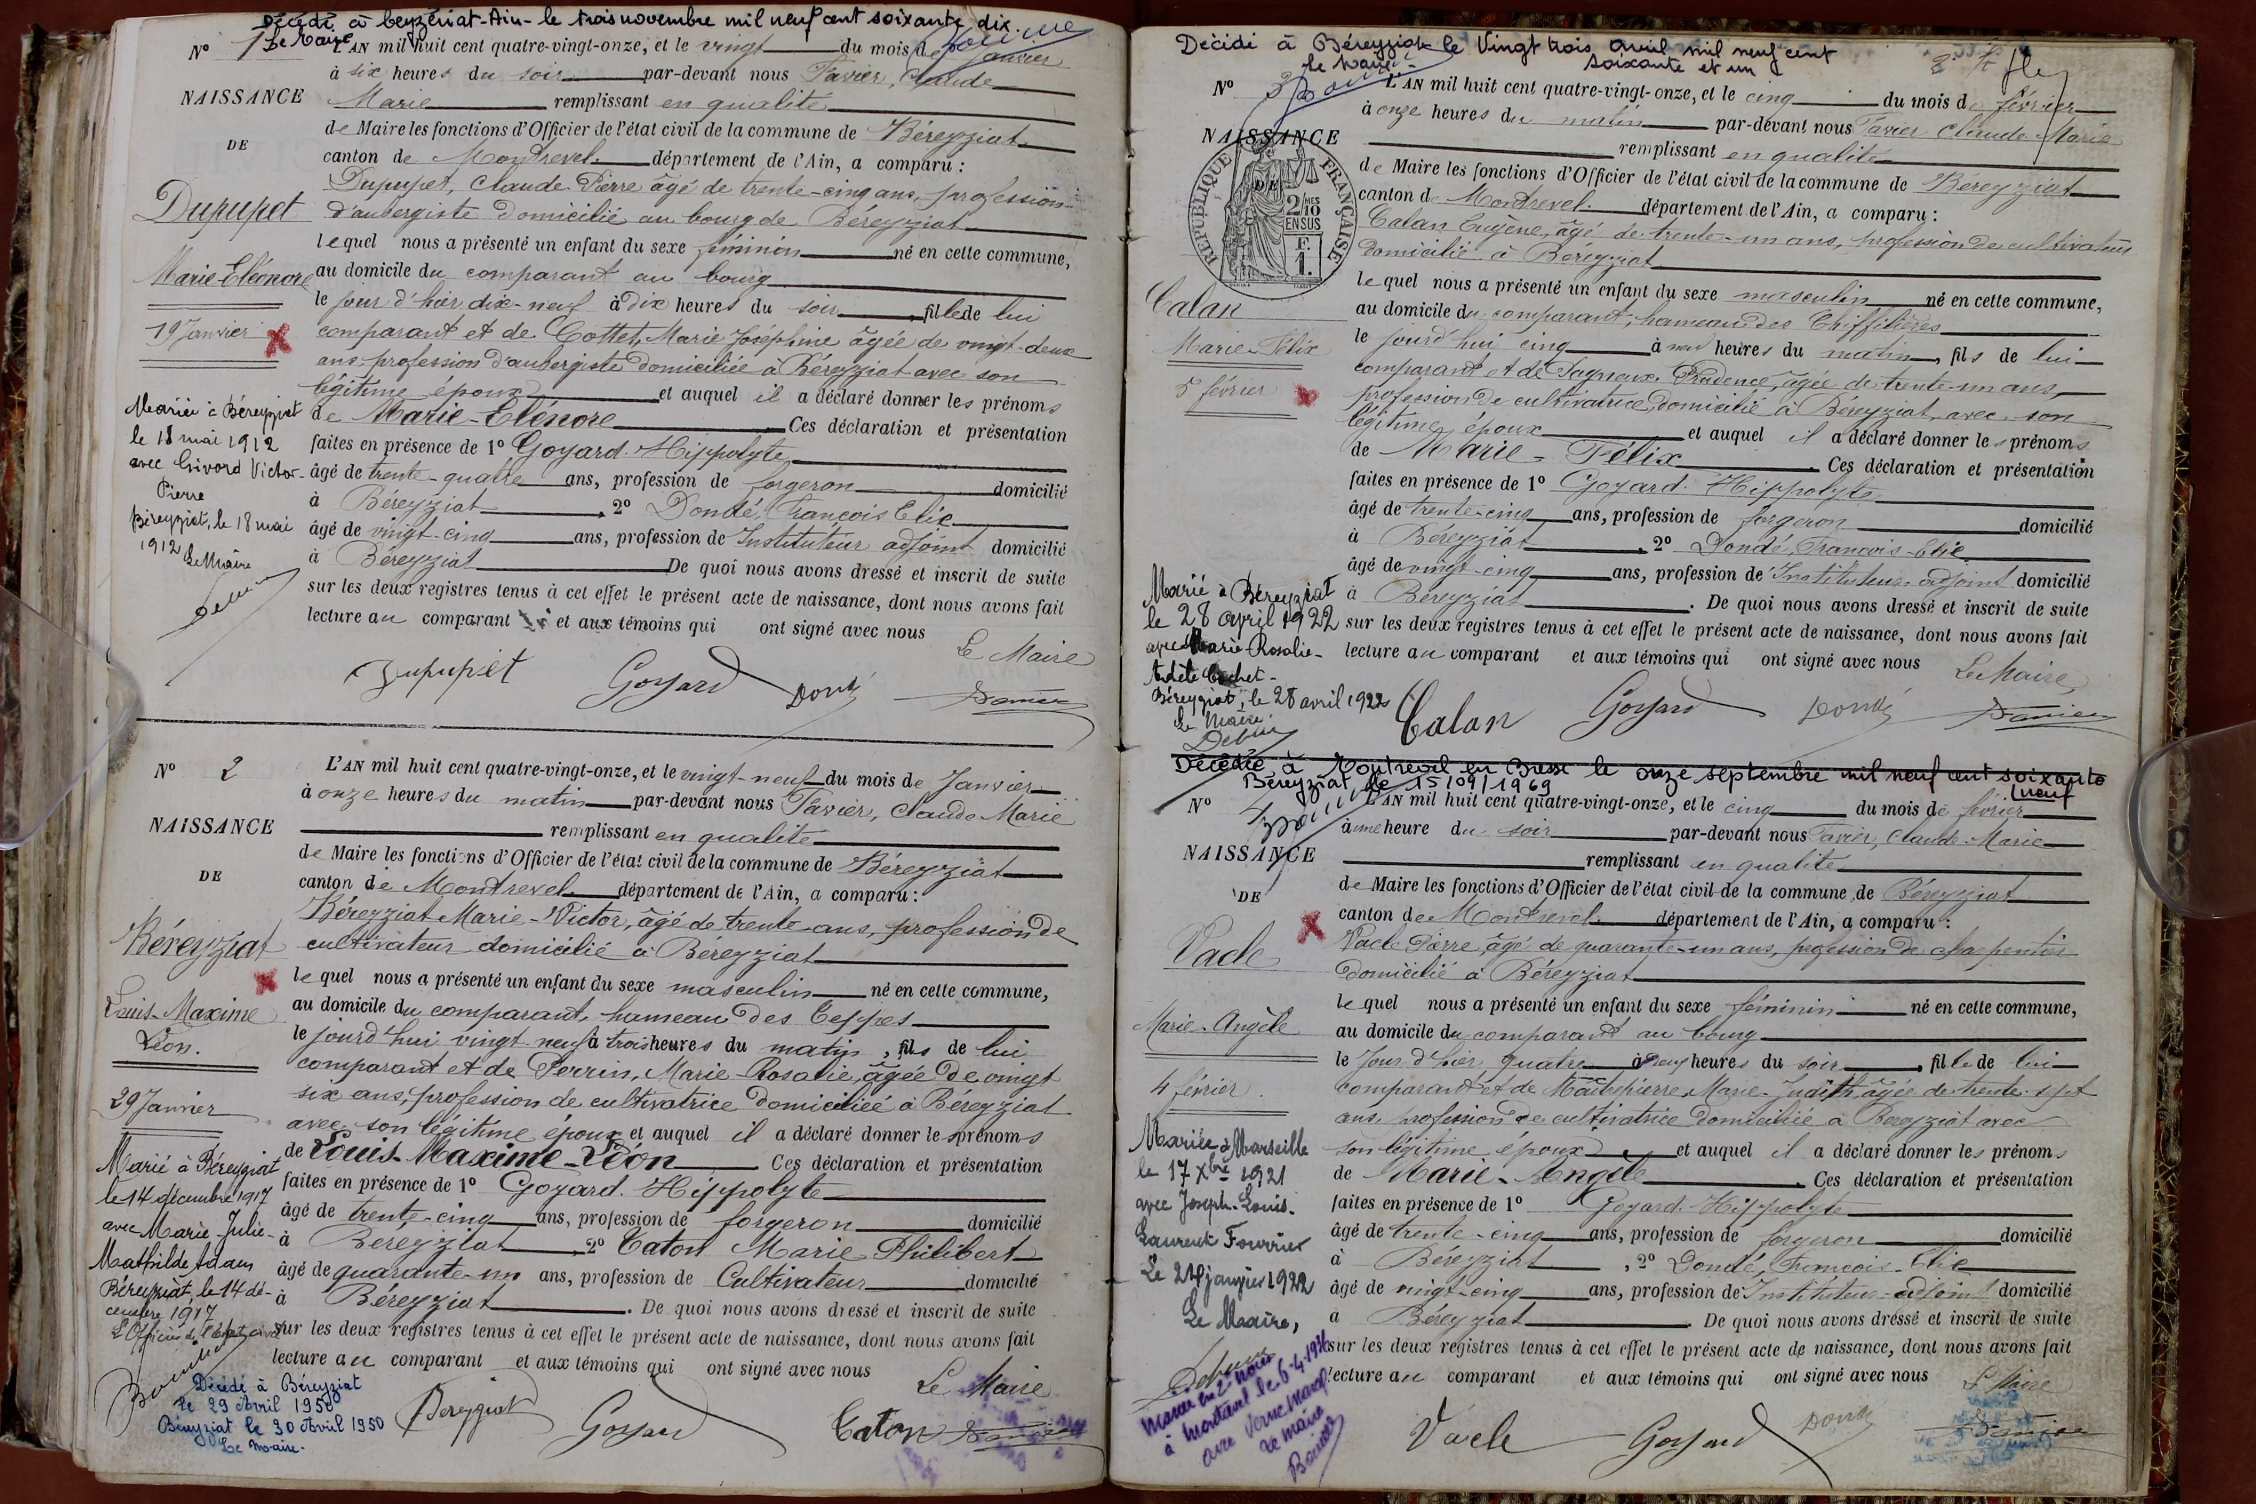 Décédé à Beyzériat-Ain- le trois novembre mil neuf cent soixante dix.
Le Maire
Nº 1
L'AN mil huit cent quatre-vingt-onze, et le vingt du mois de Janvier
à six heures du soir par-devant nous Pavier, Claude
NAISSANCE
Marie remplissant en qualité
de Maire les fonctions d'Officier de l'état civil de la commune de Béreyziat
DE
canton de Montrevel département de l'Ain, a comparu :
Dupupet, Claude Pierre âgé de trente-cinq ans, profession
Dupupet
d'aubergiste domicilié au bourg de Béreyziat
le quel nous a présenté un enfant du sexe féminin né en cette commune,
Marie-Eléonore
au domicile du comparant au bourg
le jour d'hier dix-neuf à dix heures du soir, fille de lui
19 Janvier
comparant et de Cottet, Marie Joséphine âgée de vingt-deux
ans, profession d'aubergiste domiciliée à Béreyziat avec son
légitime époux et auquel il a déclaré donner les prénoms
de Marie-Elénore Ces déclaration et présentation
faites en présence de 1º Goyard Hippolyte
âgé de trente-quatre ans, profession de forgeron domicilié
à Béreyziat, 2º Dondé, François Elie
âgé de vingt-cinq ans, profession de Instituteur adjoint domicilié
à Béreyziat De quoi nous avons dressé et inscrit de suite
sur les deux registres tenus à cet effet le présent acte de naissance, dont nous avons fait
lecture au comparant et aux témoins qui ont signé avec nous
Le Maire
Mariée à Béreyziat
le 18 mai 1912
avec Victor-
Pierre
Béreyziat, le 18 mai
1912
Le Maire
Dupupet Goyard Dondé Pavier
Nº 2
L'AN mil huit cent quatre-vingt-onze, et le vingt-neuf du mois de Janvier
à onze heures du matin par-devant nous Pavier, Claude Marie
NAISSANCE
remplissant en qualité
de Maire les fonctions d'Officier de l'état civil de la commune de Béreyziat
DE
canton de Montrevel département de l'Ain, a comparu :
Béreyziat Marie-Victor, âgé de trente ans, profession de
Béreyziat
cultivateur domicilié à Béreyziat
le quel nous a présenté un enfant du sexe masculin né en cette commune,
Louis-Maxime
Léon.
au domicile du comparant, hameau des Teppes
le jourd'hui vingt neuf à trois heures du matin, fils de lui
comparant et de Perrin, Marie-Rosalie, âgée de vingt
six ans, profession de cultivatrice domiciliée à Béreyziat
29 Janvier
avec son légitime époux et auquel il a déclaré donner les prénoms
de Louis-Maxime-Léon Ces déclaration et présentation
faites en présence de 1º Goyard Hippolyte
âgé de trente-cinq ans, profession de forgeron domicilié
à Béreyziat, 2º Caton Marie Philibert
âgé de quarante-un ans, profession de Cultivateur domicilié
à Béreyziat. De quoi nous avons dressé et inscrit de suite
sur les deux registres tenus à cet effet le présent acte de naissance, dont nous avons fait
lecture au comparant et aux témoins qui ont signé avec nous
Le Maire
Marié à Béreyziat
le 14 décembre 1917
avec Marie-Julie-
Mathilde Adam
Béreyziat, le 14 dé-
cembre 1917
L'Officier de l'état civil
Décédé à Béreyziat
le 29 Avril 1950
Béreyziat le 30 Avril 1950
Le maire.
Bereyziat Goyard Caton Pavier
Décédé à Béreyziat le Vingt trois avril mil neuf cent
soixante et un
le Maire
Nº 3
L'AN mil huit cent quatre-vingt-onze, et le cinq du mois de février
à onze heures du matin par-devant nous Pavier Claude Marie
NAISSANCE
remplissant en qualité
DE
RÉPUBLIQUE FRANÇAISE
2/10
MES
EN SUS
F.
1.
de Maire les fonctions d'Officier de l'état civil de la commune de Béreyziat
canton de Montrevel département de l'Ain, a comparu :
Calan Eugène, âgé de trente-un ans, profession de cultivateur
domicilié à Béreyziat
le quel nous a présenté un enfant du sexe masculin né en cette commune,
Calan
au domicile du comparant, hameau des Chiffilières
Marie-Félix
le jourd'hui cinq à neuf heures du matin, fils de lui
comparant et de Prudence, âgée de trente-un ans,
5 février
profession de cultivatrice, domicilié à Béreyziat, avec son
légitime époux et auquel il a déclaré donner les prénoms
de Marie-Félix Ces déclaration et présentation
faites en présence de 1º Goyard Hippolyte
âgé de trente-cinq ans, profession de forgeron domicilié
à Béreyziat, 2º Dondé, François-Elie
âgé de vingt-cinq ans, profession de Instituteur adjoint domicilié
à Béreyziat. De quoi nous avons dressé et inscrit de suite
sur les deux registres tenus à cet effet le présent acte de naissance, dont nous avons fait
lecture au comparant et aux témoins qui ont signé avec nous
Le Maire,
Marié à Béreyziat
le 28 april 1922
avec Marie-Rosalie-
Béreyziat, le 28 avril 1922
Le Maire
Calan Goyard Dondé Pavier
Décédée à Montrevel en Bresse le onze septembre mil neuf cent soixante
neuf
Béreyziat le 15/09/1969
Nº 4
L'AN mil huit cent quatre-vingt-onze, et le cinq du mois de février
à une heure du soir par-devant nous Pavier, Claude Marie
NAISSANCE
remplissant en qualité
de Maire les fonctions d'Officier de l'état civil de la commune de Béreyziat
DE
canton de Montrevel département de l'Ain, a comparu :
Vacle
Vacle Pierre, âgé de quarante-un ans, profession de charpentier
domicilié à Béreyziat
le quel nous a présenté un enfant du sexe féminin né en cette commune,
Marie-Angèle
au domicile du comparant au bourg
le jour d'hier, quatre à neuf heures du soir, fille de lui
4 février.
comparant et de Marie-Judith, âgée de trente-sept
ans, profession de cultivatrice domiciliée à Béreyziat avec
son légitime époux et auquel il a déclaré donner les prénoms
de Marie-Angèle Ces déclaration et présentation
faites en présence de 1º Goyard Hippolyte
âgé de trente-cinq ans, profession de forgeron domicilié
à Béreyziat, 2º Dondé, François-Elie
âgé de vingt-cinq ans, profession de Instituteur-adjoint domicilié
à Béreyziat. De quoi nous avons dressé et inscrit de suite
sur les deux registres tenus à cet effet le présent acte de naissance, dont nous avons fait
lecture au comparant et aux témoins qui ont signé avec nous
Le Maire
Mariée à Marseille
le 17 Xbre 1921
avec Joseph-Louis-
Laurent Fournier
Le 24 janvier 1922
Le Maire,
Mariée en 2e noces
à Montrevel le 6-4-1936
avec
le maire
Vacle Goyard Dondé Pavier